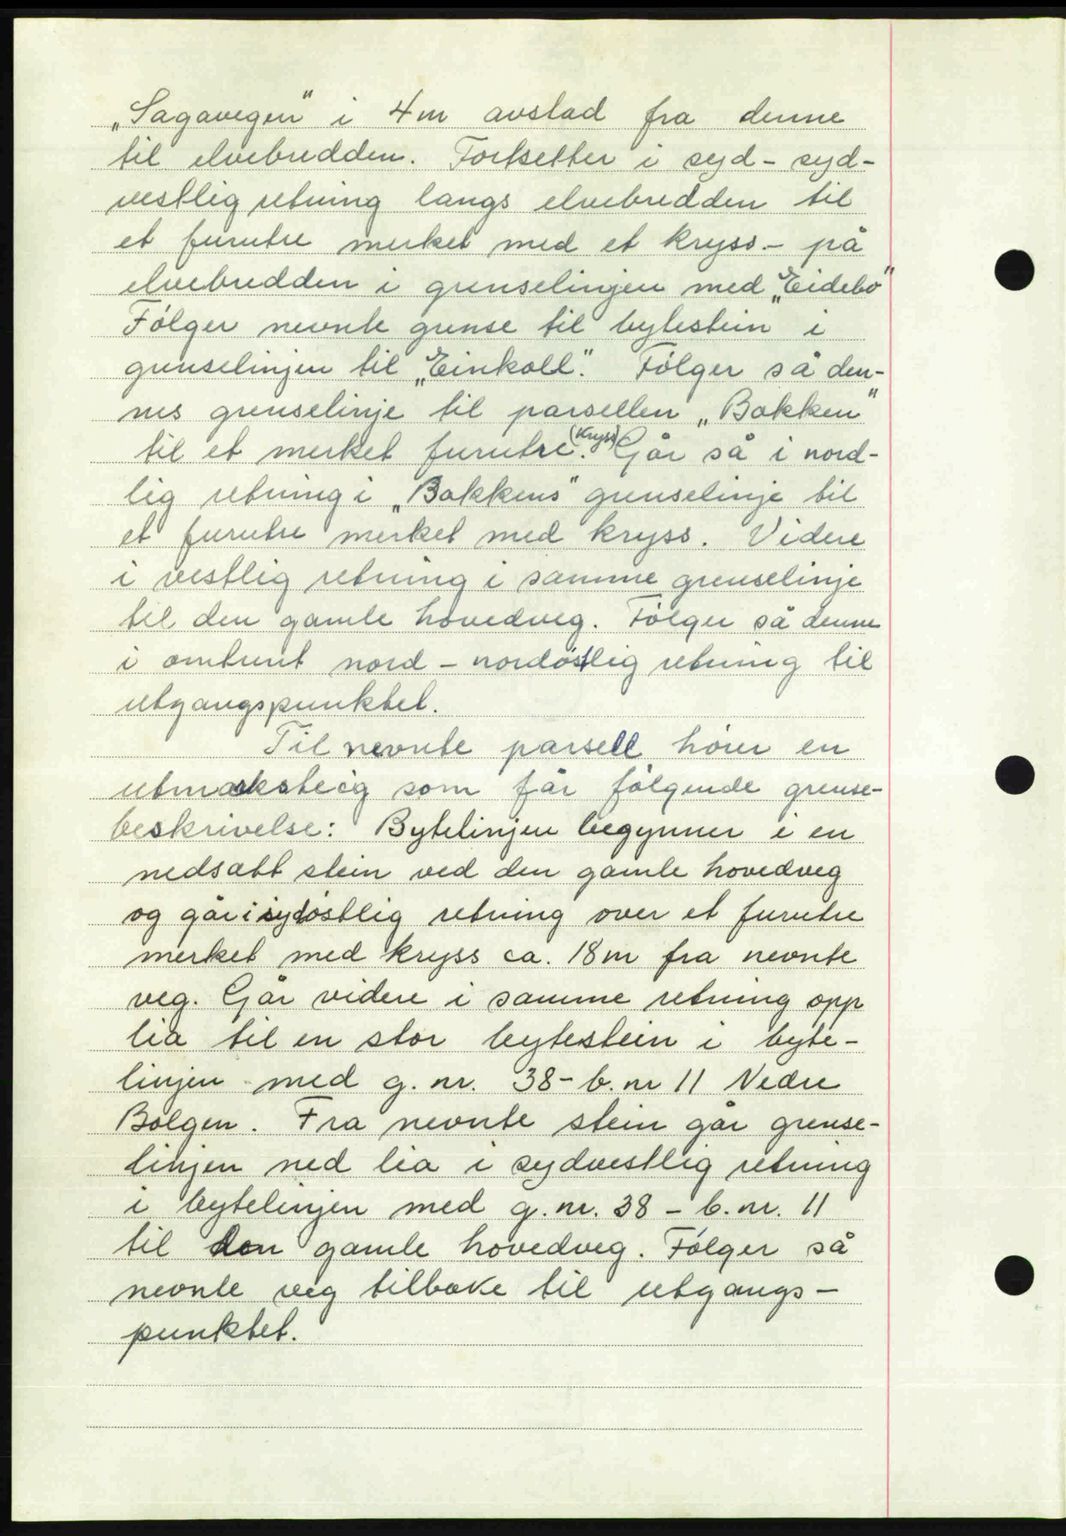 „Sagavegen" i 4m avstad fra denne
til elvebredden. Fortsetter i syd - syd-
vestlig retning langs elvebredden til
et furutre merket med et kryss - på
elvebredden i grenselinjen med „Eidebo"
Følger nevnte grense til bytestein i
grenselinjen til „Einkoll". Følger så den-
nes grenselinje til parsellen „Bakken"
til et merket furutre (Kryss). Går så i nord-
lig retning i „Bakkens" grenselinje til
et furutre merket med kryss. Videre
i vestlig retning i samme grenselinje
til den gamle hovedveg. Følger så denne
i omtrent nord - nordøstlig retning til
utgangspunktet.
Til nevnte parsell hører en
utmarksteig som får følgende grense-
beskrivelse: Bytelinjen begynner i en
nedsatt stein ved den gamle hovedveg
og går i sydøstlig retning over et furutre
merket med kryss ca. 18m fra nevnte
veg. Går videre i samme retning opp
lia til en stor bytestein i byte-
linjen med g. nr. 38 - b. nr 11 Nedre
Bolgen. Fra nevnte stein går grense-
linjen ned lia i sydvestlig retning
i bytelinjen med g. nr. 38 - b. nr. 11
til den gamle hovedveg. Følger så
nevnte veg tilbake til utgangs-
punktet.